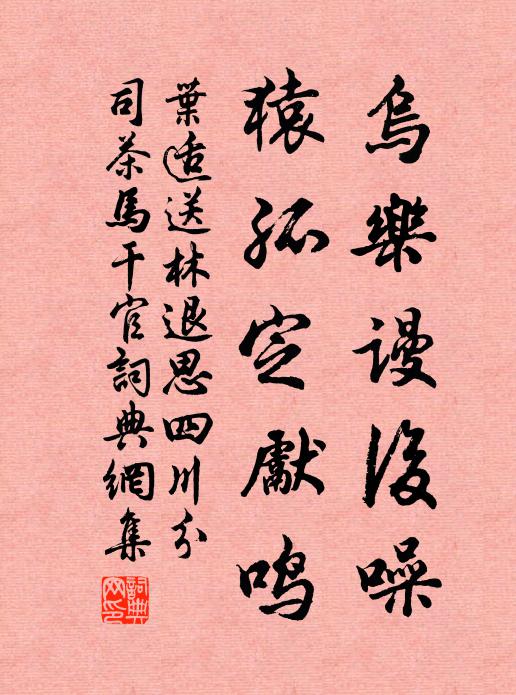 烏樂謾後噪
猿孤定獻鳴
葉适送林退思四川分
司茶馬干官詞典網集
詞典网印